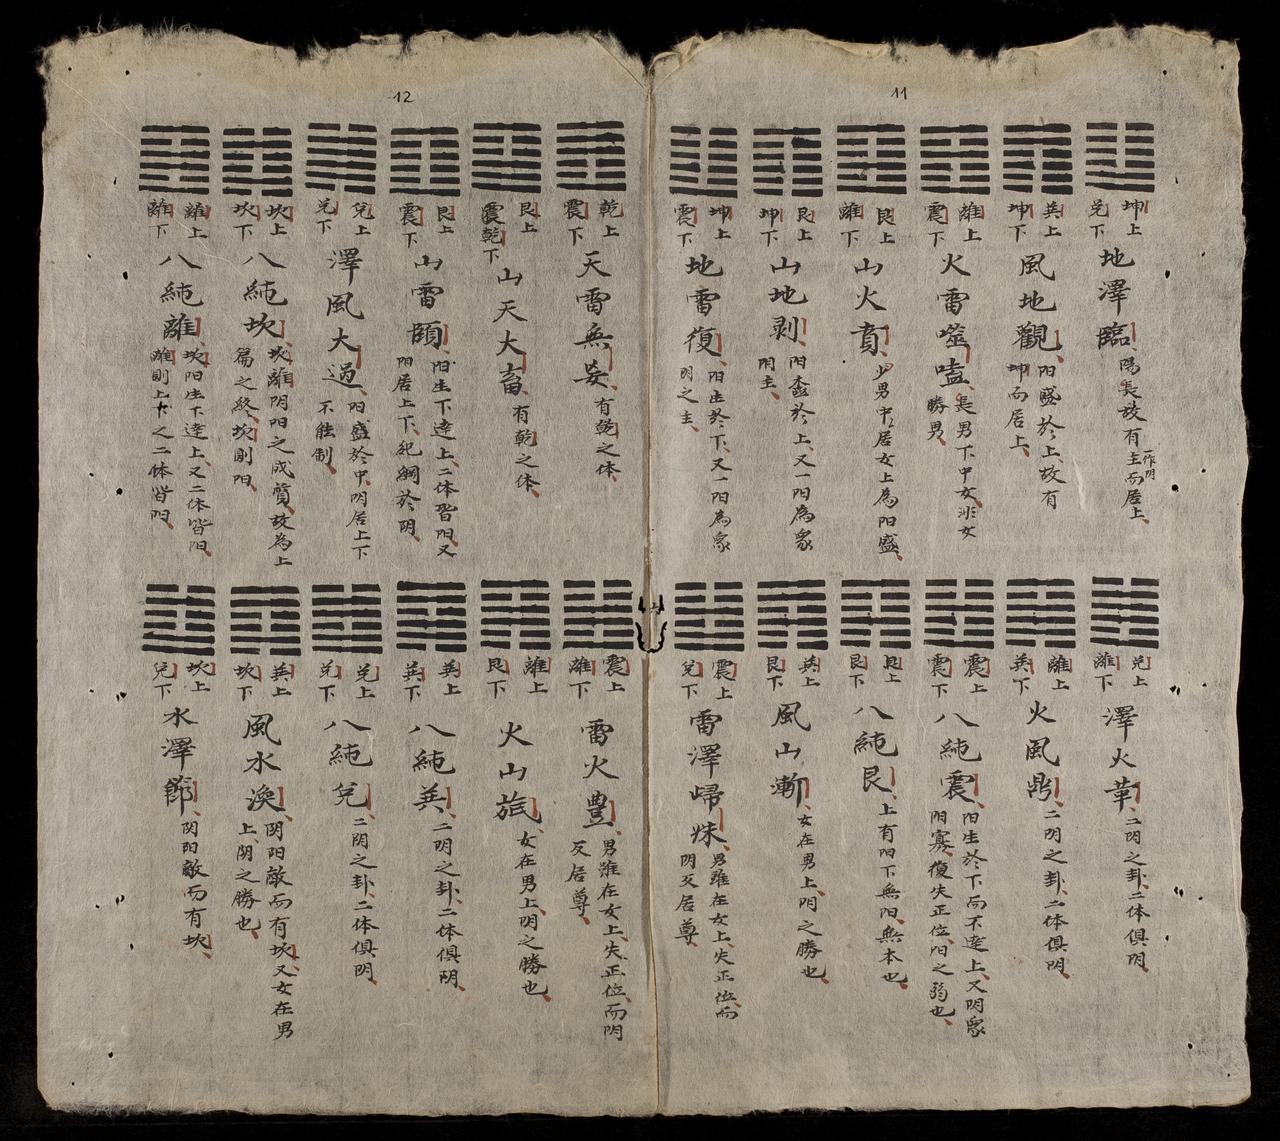 11
坤上
兌下
地澤臨
陽長故有主而居上
一作阴
巽上
坤下
風地觀
阳盛於上故有
坤而居上
離上
震下
火雷噬嗑
長男下中女非女
勝男
艮上
離下
山火賁
少男中居女上為阳盛
艮上
坤下
山地剥
阳盛於上又一阳為衆
阴主
坤上
震下
地雷復
阳生於下又一阳為衆
阴之主
兌上
離下
澤火革
二阴之卦二体俱阴
離上
巽下
火風鼎
二阴之卦二体俱阴
震上
震下
八純震
阳生於下而不達上又阴衆
阳寡復失正位阳之弱也
艮上
艮下
八純艮
上有阳下無阳無本也
巽上
艮下
風山漸
女在男上阴之勝也
震上
兌下
雷澤歸妹
男雖在女上失正位而
阴反居尊
12
乾上
震下
天雷無妄
有乾之体
艮上
震乾下
山天大畜
有乾之体
艮上
震下
山雷頤
阳生下達上二体皆阳又
阳居上下紀綱於阴
兌上
兌下
澤風大過
阳盛於中阴居上下
不能制
坎上
坎下
八純坎
坎離阴阳之成質故為上
篇之終坎則阳
離上
離下
八純離
坎阳生下達上又二体皆阳
離則上下之二体皆阳
震上
離下
雷火豊
男雖在女上失正位而阴
反居尊
離上
艮下
火山旅
女在男上阴之勝也
巽上
巽下
八純巽
二阴之卦二体俱阴
兌上
兌下
八純兌
二阴之卦二体俱阴
巽上
坎下
風水渙
阴阳敵而有坎又女在男
上阴之勝也
坎上
兌下
水澤節
阴阳敵而有坎